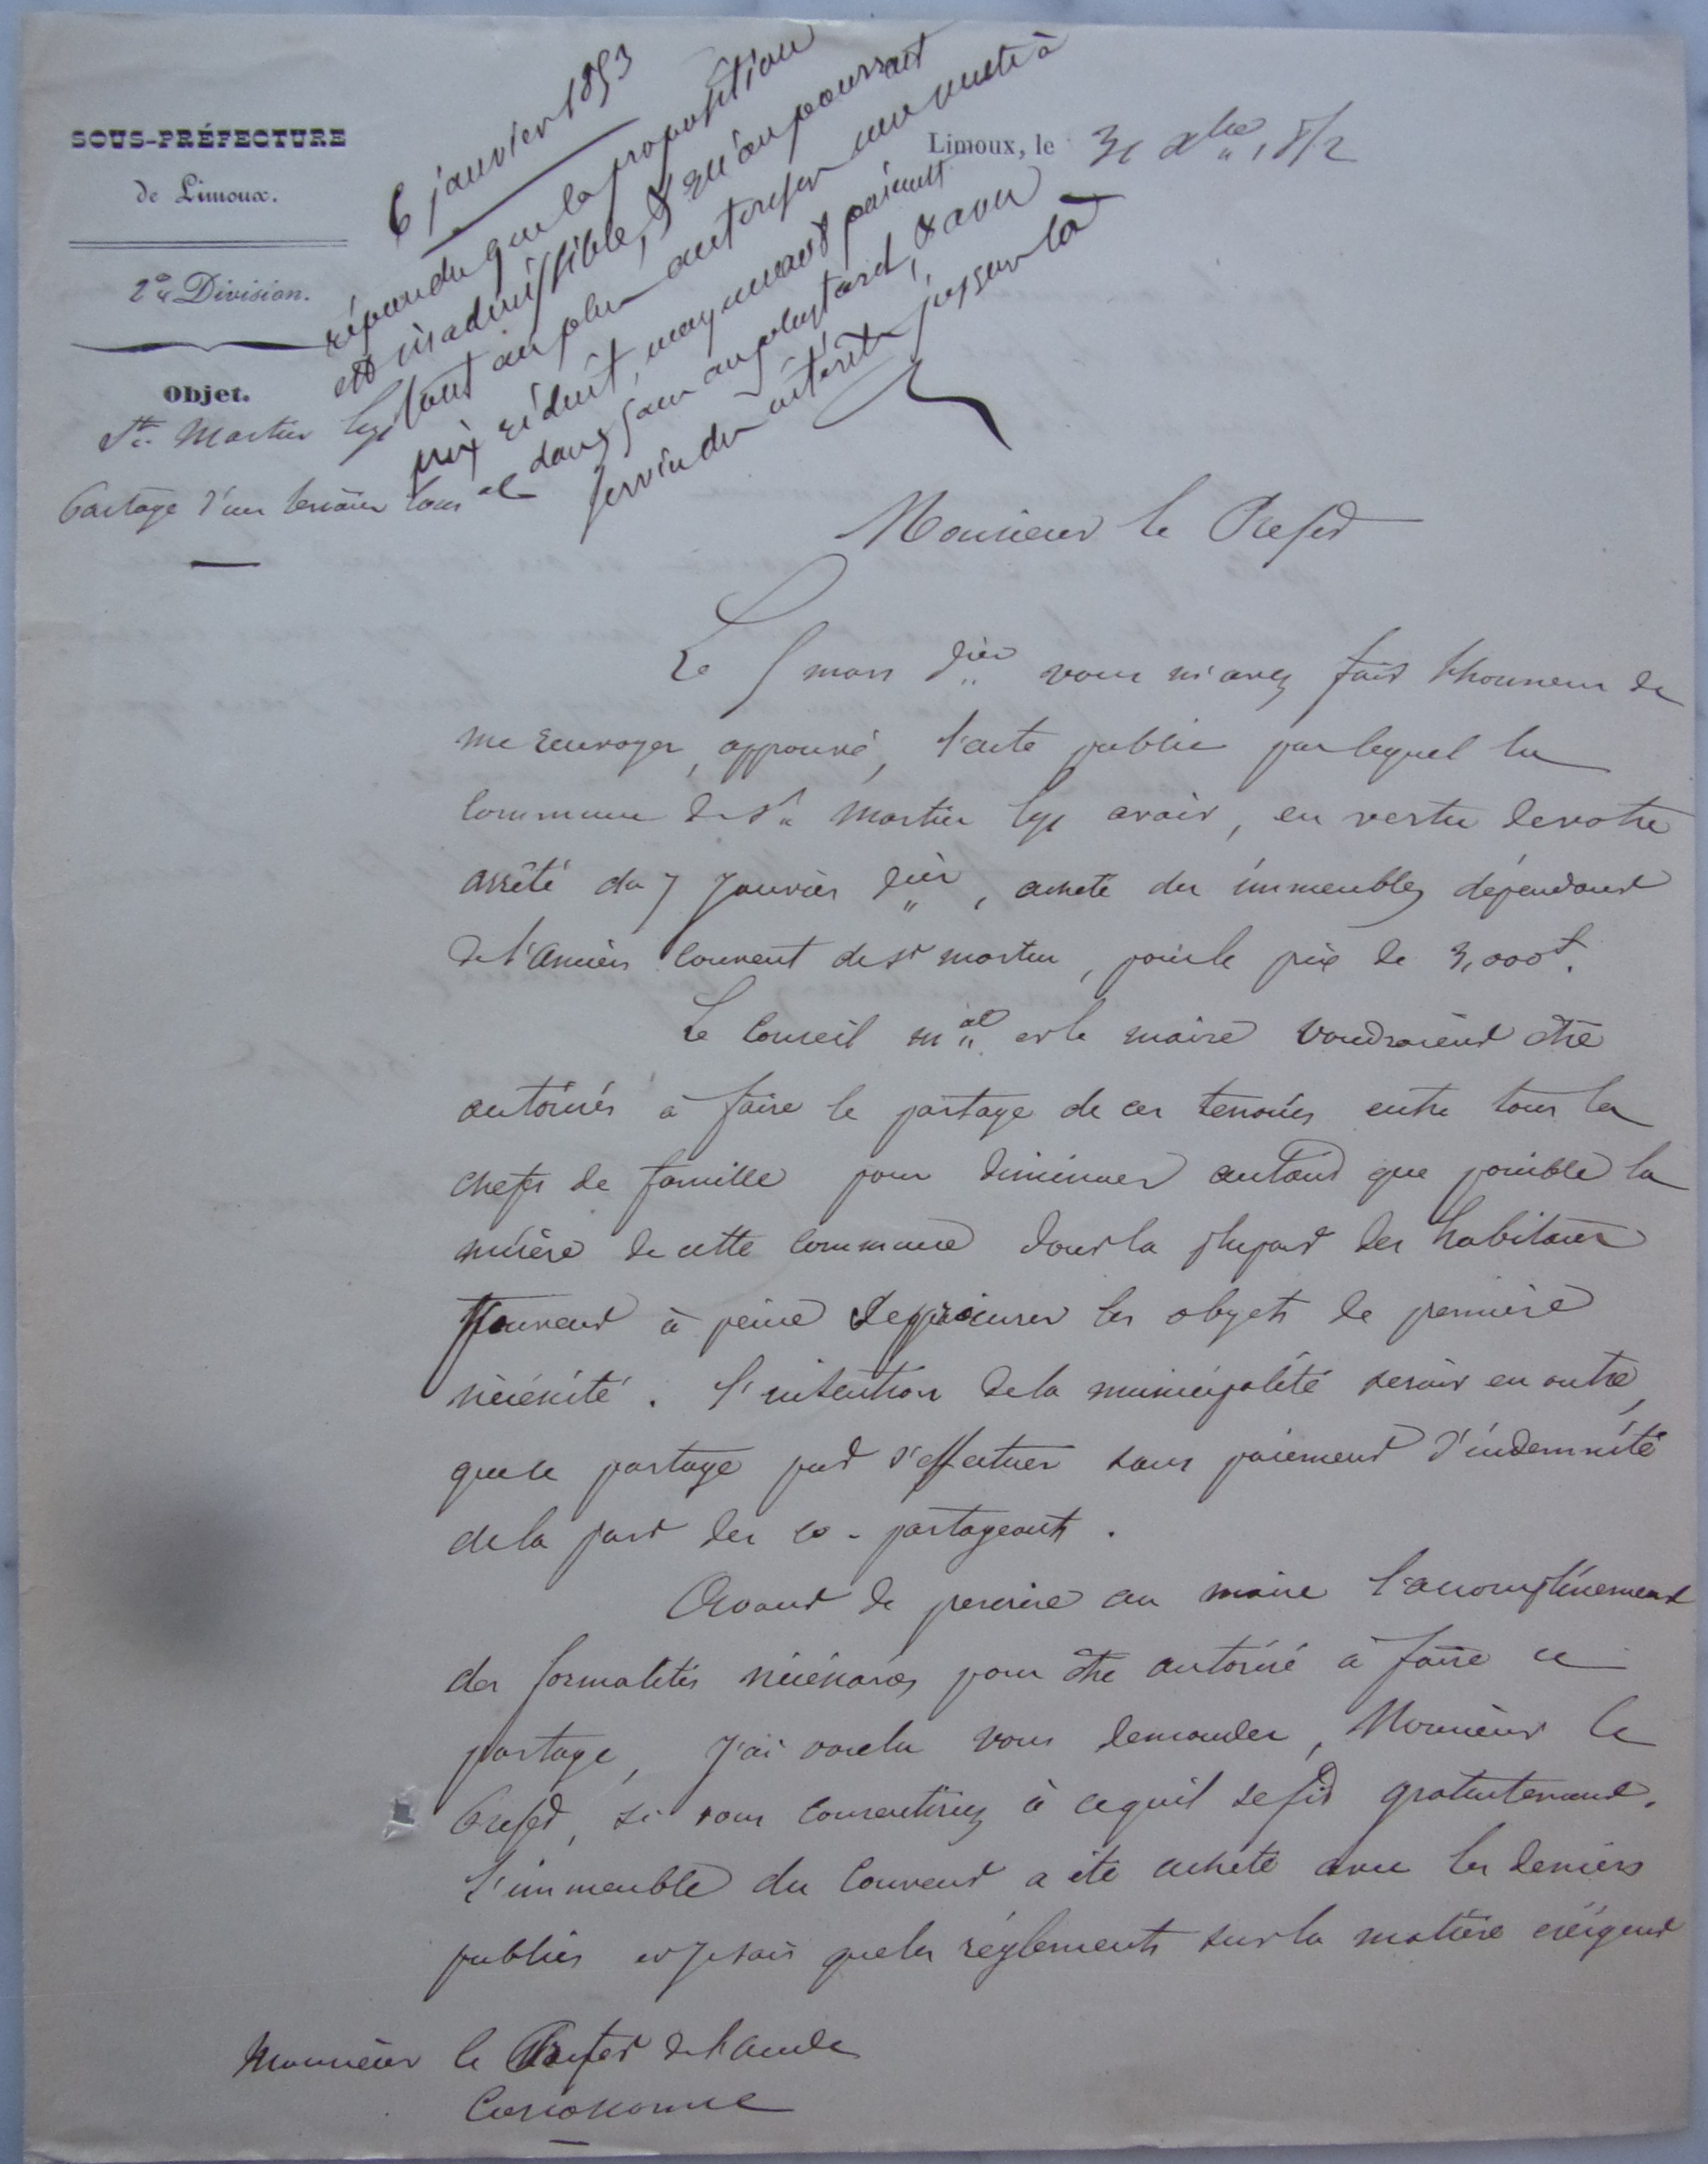 SOUS-PRÉFECTURE
de Limoux.
2e Division.
Objet.
St. Martin Lys
Partage d'un terrain comal
6 janvier 1853
répondu que la proposition
est inadmissible, & qu'on pourrait
tout au plus autoriser une vente à
prix réduit, moyennant paiement
dans 5 ans au plus tard, & avec
service des intérêts jusque là
Limoux, le 31 Xbre 1852
Monsieur le Préfet
Le 5 mars dier vous m'avez fait l'honneur de
me renvoyer, approuvé, l'acte public par lequel la
commune de St Martin Lys avait, en vertu de votre
arrêté du 7 Janvier dier, acheté des immeubles dépendant
de l'ancien couvent de St martin, pour le prix de 3,000f.
Le Conseil mal et le maire voudraient être
autorisés à faire le partage de ces terrains entre tous les
chefs de famille pour diminuer autant que possible la
misère de cette commune dont la plupart des habitans
peuvent à peine se procurer les objets de première
nécessité. L'intention de la municipalité serait en outre,
que le partage put s'effectuer sans paiement d'indemnité
de la part des co-partageants.
Avant de prescrire au maire l'accomplissement
des formalités nécessaires pour être autorisé à faire ce
partage, j'ai voulu vous demander, Monsieur le
Préfet, si vous consentiriez à ce qu'il se fit gratuitement.
L'immeuble du couvent a été acheté avec les deniers
publics et je sais que les réglements sur la matière exigent
Monsieur le Préfet de l'Aude
Carcassonne